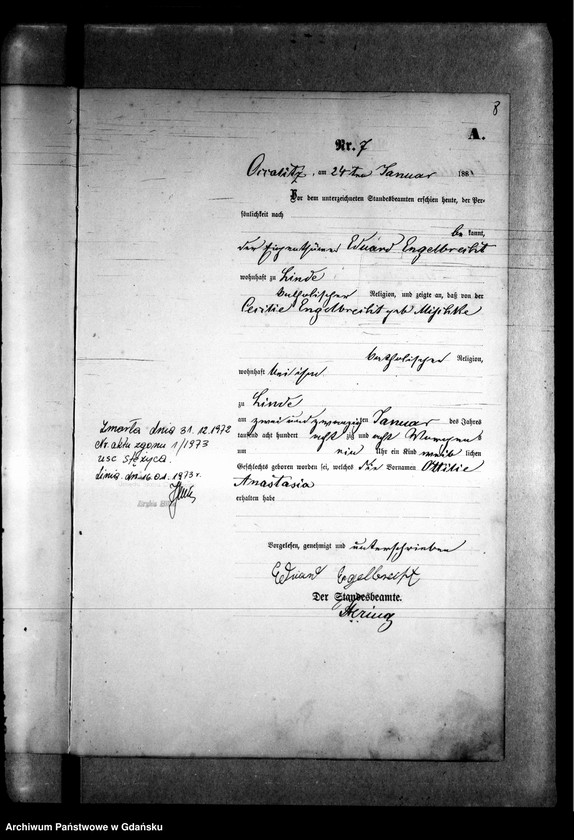 8
A.
Nr. 7
am 24ten Januar 188
Vor dem unterzeichneten Standesbeamten erschien heute, der Per-
sönlichkeit nach
be kannt,
der Eigenthümer Eduard Engelbrecht
wohnhaft zu Linde
katholischer Religion, und zeigte an, daß von der
Engelbrecht geb Mischke
katholischer Religion,
wohnhaft bei ihm
zu Linde
am zwei und zwanzigsten Januar des Jahres
tausend acht hundert acht zig und acht
um ein Uhr ein Kind weib lichen
Geschlechts geboren worden sei, welches die Vornamen Ottilie
Anastasia
erhalten habe
Vorgelesen, genehmigt und unterschrieben
Eduard Egelbrecht
Der Standesbeamte.
Zmarła dnia 31.12.1972
Nr. aktu zgonu 1/1973
usc Stężyca
Linia dnia 16.01.1973 r.
Archiwum Państwowe w Gdańsku